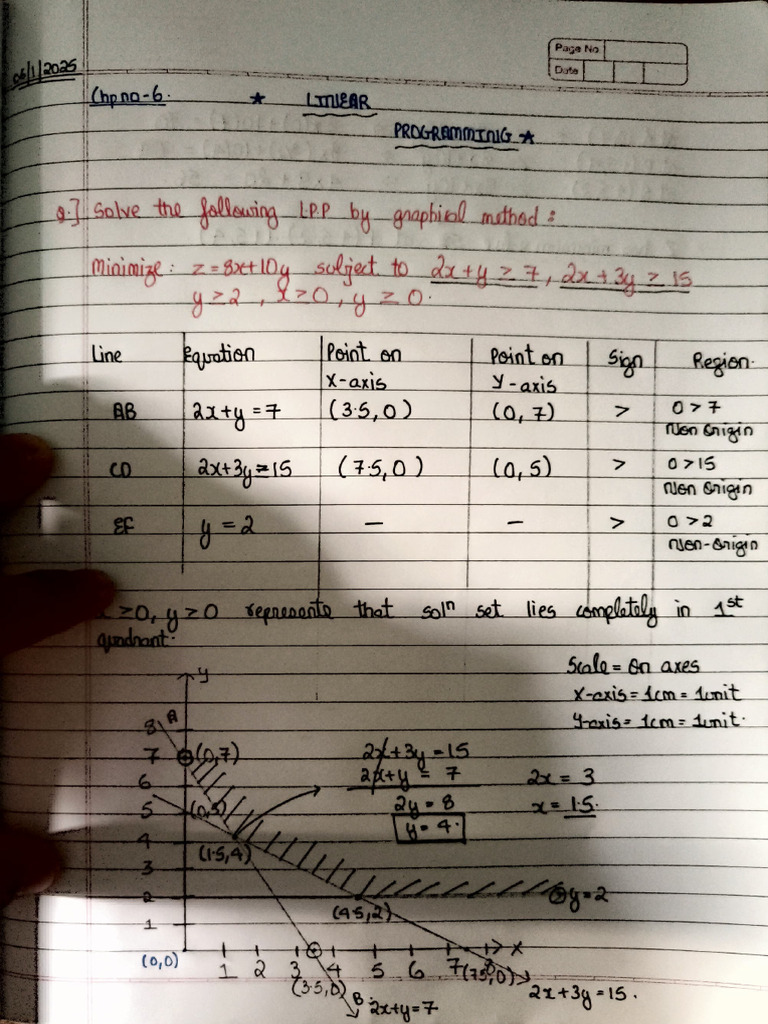 Page No
Date
06/1/2025
Chp no-6. * LINEAR
PROGRAMMING *
Q.] Solve the following L.P.P by graphical method :
Minimize: z = 8x+10y subject to 2x+y ≥ 7, 2x+3y ≥ 15
y ≥ 2, x ≥ 0, y ≥ 0.
Line Equation Point on Point on Sign Region.
X-axis Y-axis
AB 2x+y = 7 (3.5, 0) (0, 7) > 0 > 7
Non Origin
CD 2x+3y = 15 (7.5, 0) (0, 5) > 0 > 15
Non Origin
EF y = 2 – – > 0 > 2
Non-Origin
x ≥ 0, y ≥ 0 represents that solⁿ set lies completely in 1st
quadrant.
Scale = On axes
X-axis = 1cm = 1unit
Y-axis = 1cm = 1unit.
y
8 A
7 (0,7)
2x+3y = 15
6 2x+y = 7 2x = 3
5 (0,5) 2y = 8 x = 1.5.
y = 4.
4
(1.5,4)
3
2 y = 2
(4.5,2)
1
x
(0,0) 1 2 3 4 5 6 7 8 (7.5,0)
(3.5,0) 2x+3y = 15.
B 2x+y = 7